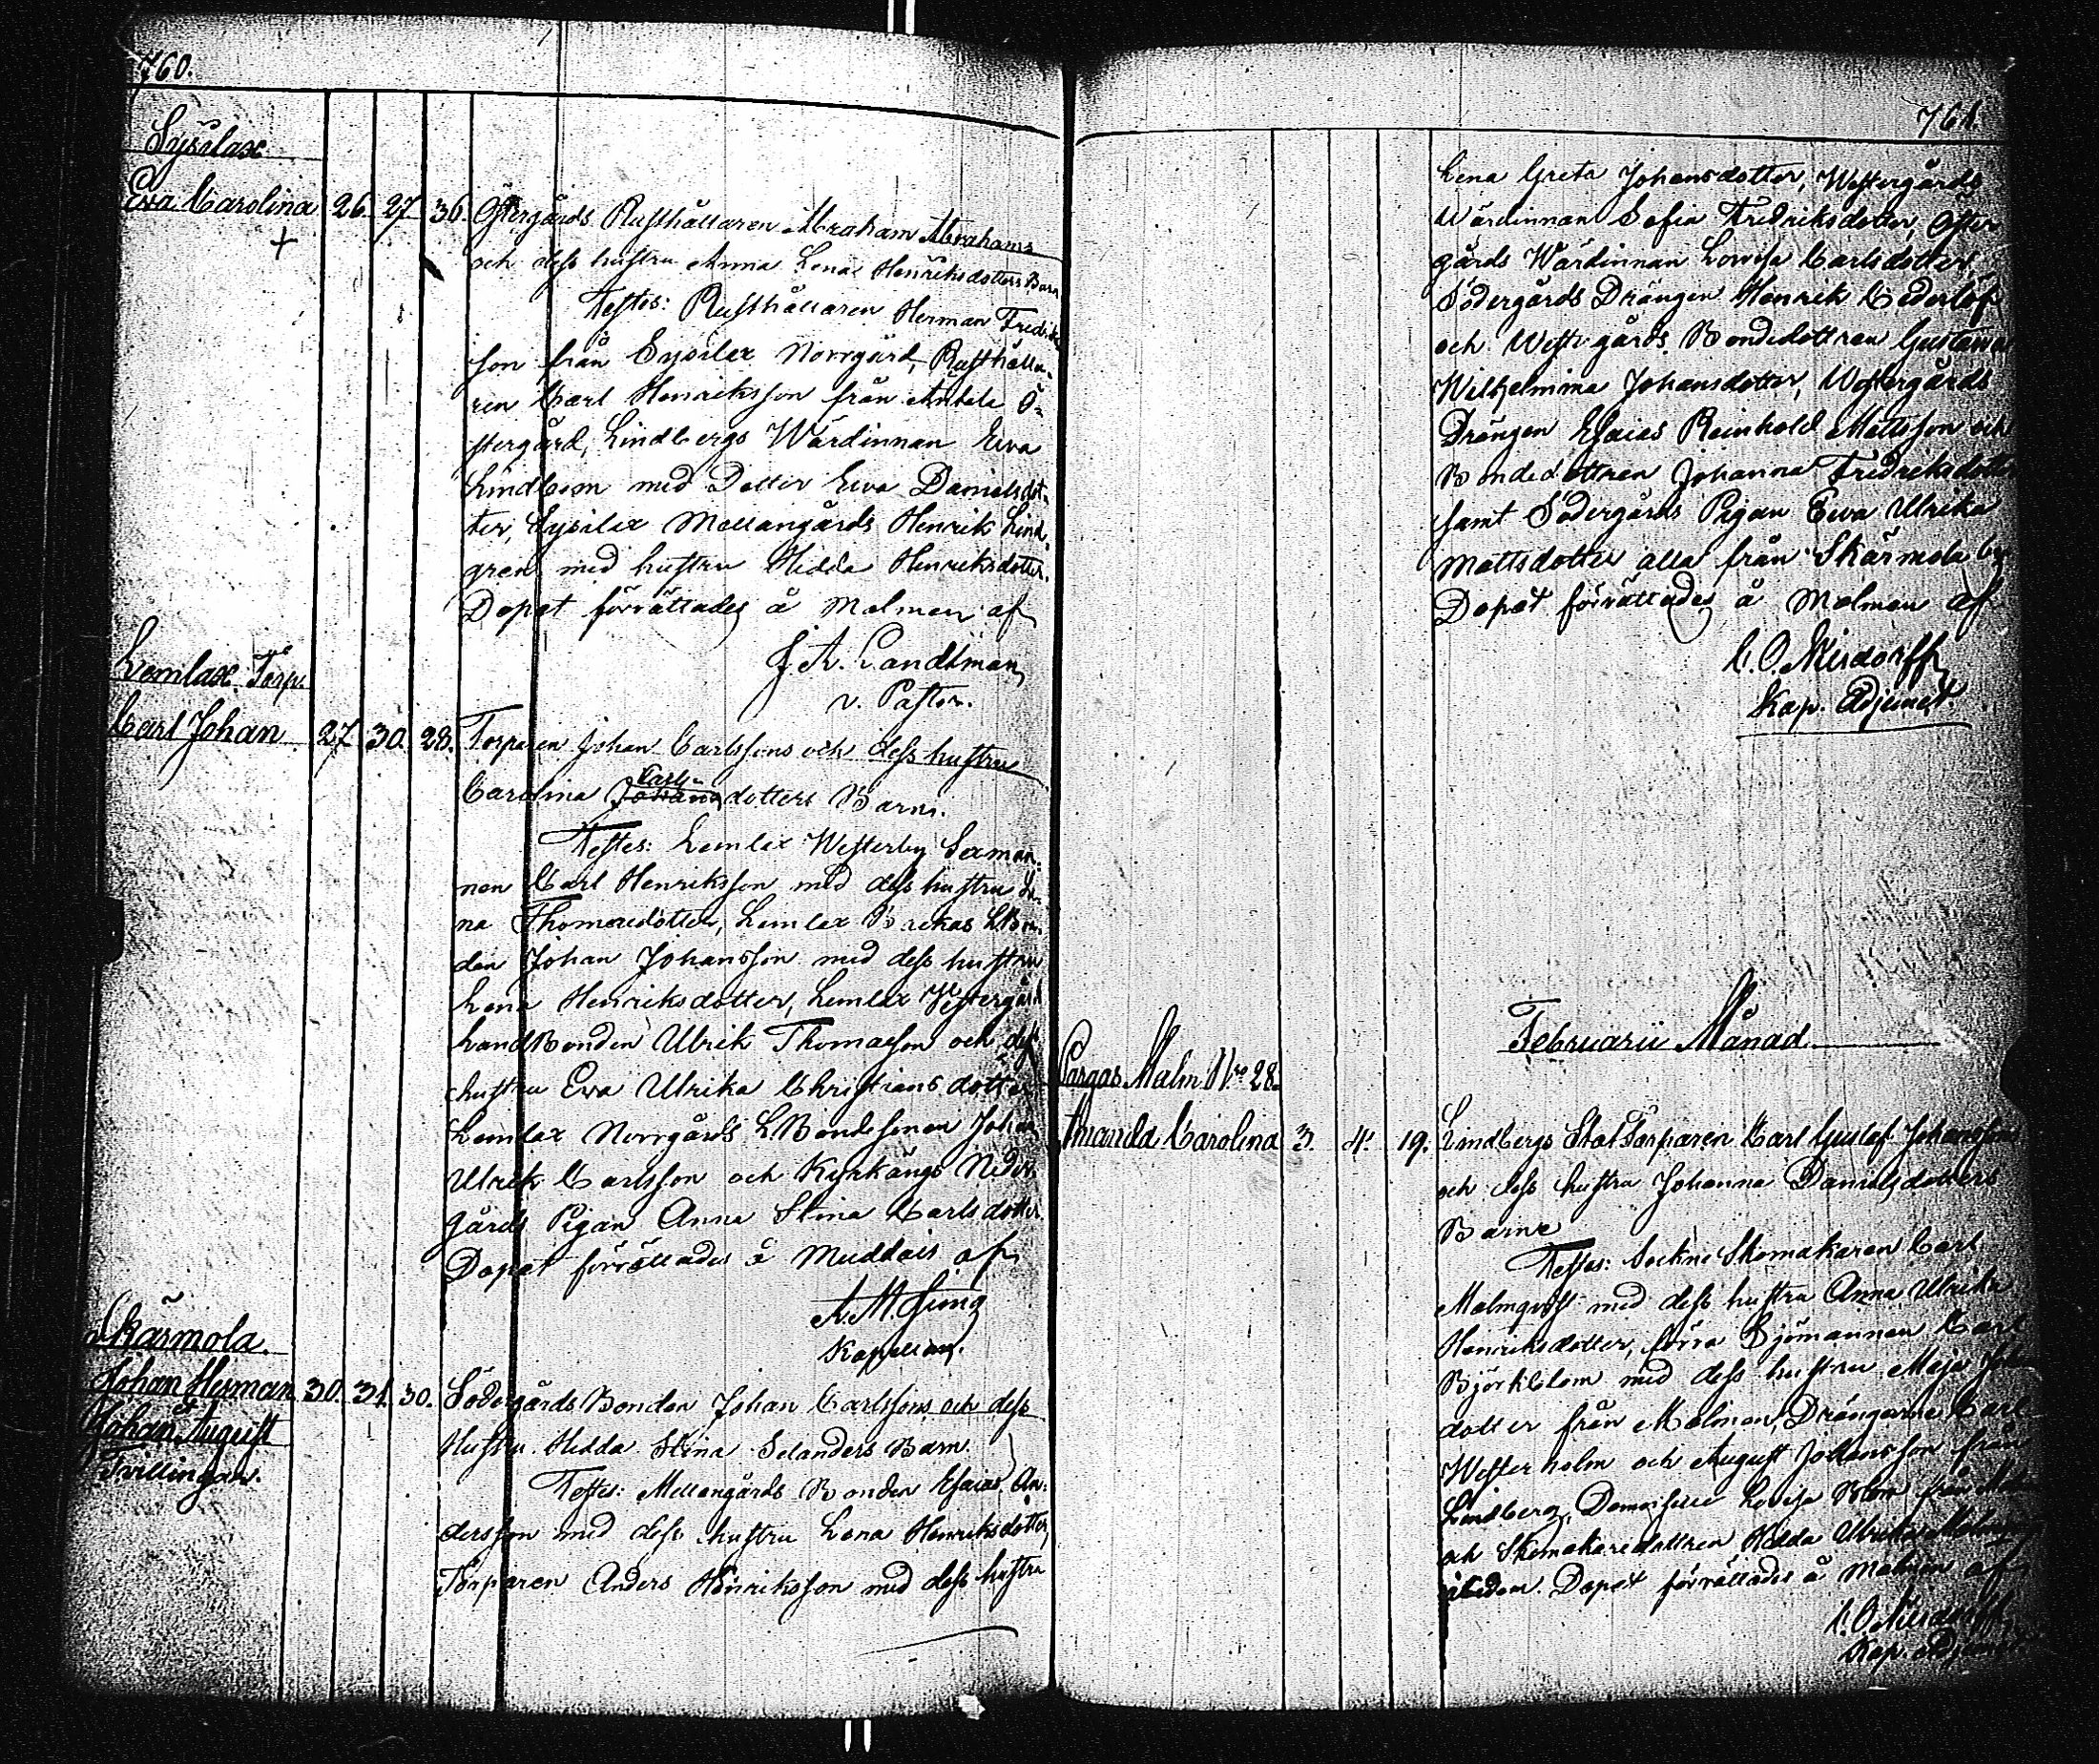 760.
Sysilax
Eva Carolina 26. 27. 36. Östergårds Rusthållaren Abraham Abrahams
och dess hustru Anna Lena Henriksdotters Barn
Testes: Rusthållaren Herman Fredriks
son från Sysilax Norrgård, Rusthålla-
ren Carl Henriksson från Antala Ö-
stergård, Lindbergs Wärdinnan Ewa
Lindbom med Dotter Ewa Danielsdot-
ter, Sysilax Mellangårds Henrik Lind-
gren med hustru Hedda Henriksdotter.
Dopet förrättades å Malmen af
J. A. Candlman
v. Pastor.
Lemlax Torp.
Carl Johan 27. 30. 28. Torparen Johan Carlssons och dess hustru
Carls
Carolina Johansdotters Barn.
Testes: Lemlax Westerby
nen Carl Henriksson med dess hustru Le-
na Thomasdotter, Lemlax Backas LBon-
den Johan Johansson med dess hustru
Lena Henriksdotter, Lemlax Westergård
LandBonden Ulrik Thomasson och dess
hustru Ewa Ulrika Christiansdotter
Lemlax Norrgårds LBondesonen Johan
Ulrik Carlsson och Kyrkängs Neder
gårds Pigan Anna Stina Carlsdotter.
Dopet förrättades å Muddais af
Kapellan.
Skärmola
Johan Herman 30. 31. 30. Södergårds Bonden Johan Carlssons och dess
Johan August
Hustru Hedda Stina Selanders Barn.
Tvillingar.
Testes: Mellangårds Bonden Esaias An-
dersson med dess hustru Lena Henriksdotter,
Torparen Anders Henriksson med dess hustru
761.
Lena Greta Johansdotter, Westergårds
Wärdinnan Sofia Fredriksdotter, Öster
gårds Wärdinnan Lowisa Carlsdotter,
Södergårds Drängen Henrik Cederlöf
och Westergårds Bondedottren Gustawa
Wilhelmina Johansdotter, Westergårds
Drängen Esaias Reinhold Mattsson och
Bondedottren Johanna Fredriksdotter
samt Södergårds Pigan Ewa Ulrika
Mattsdotter alla från Skärmola by
Dopet förrättades å Malmen af
C. O. Nisdorff
Kap. Adjunct.
Februarii Månad
Pargas Malm Nro 28.
Amanda Carolina 3. 4. 19. Lindbergs StatTorparen Carl Gustaf Johanssons
och dess hustru Johanna Danielsdotters
Barn
Testes: Sockne Skomakaren Carl
Malmqvist med dess hustru Anna Ulrika
Henriksdotter, förra Sjömannen Carl
Björkblom med dess hustru Maja
dotter från Malmen, Drängarne Carl
Westerholm och August Johansson från
Lindberg, Demoiselle Lovisa Blom från
och Skomakaredottren Hedda Ulrika
Dopet förrättades å Malmen af
C. O. Nisdorff
Kap. Adjunct